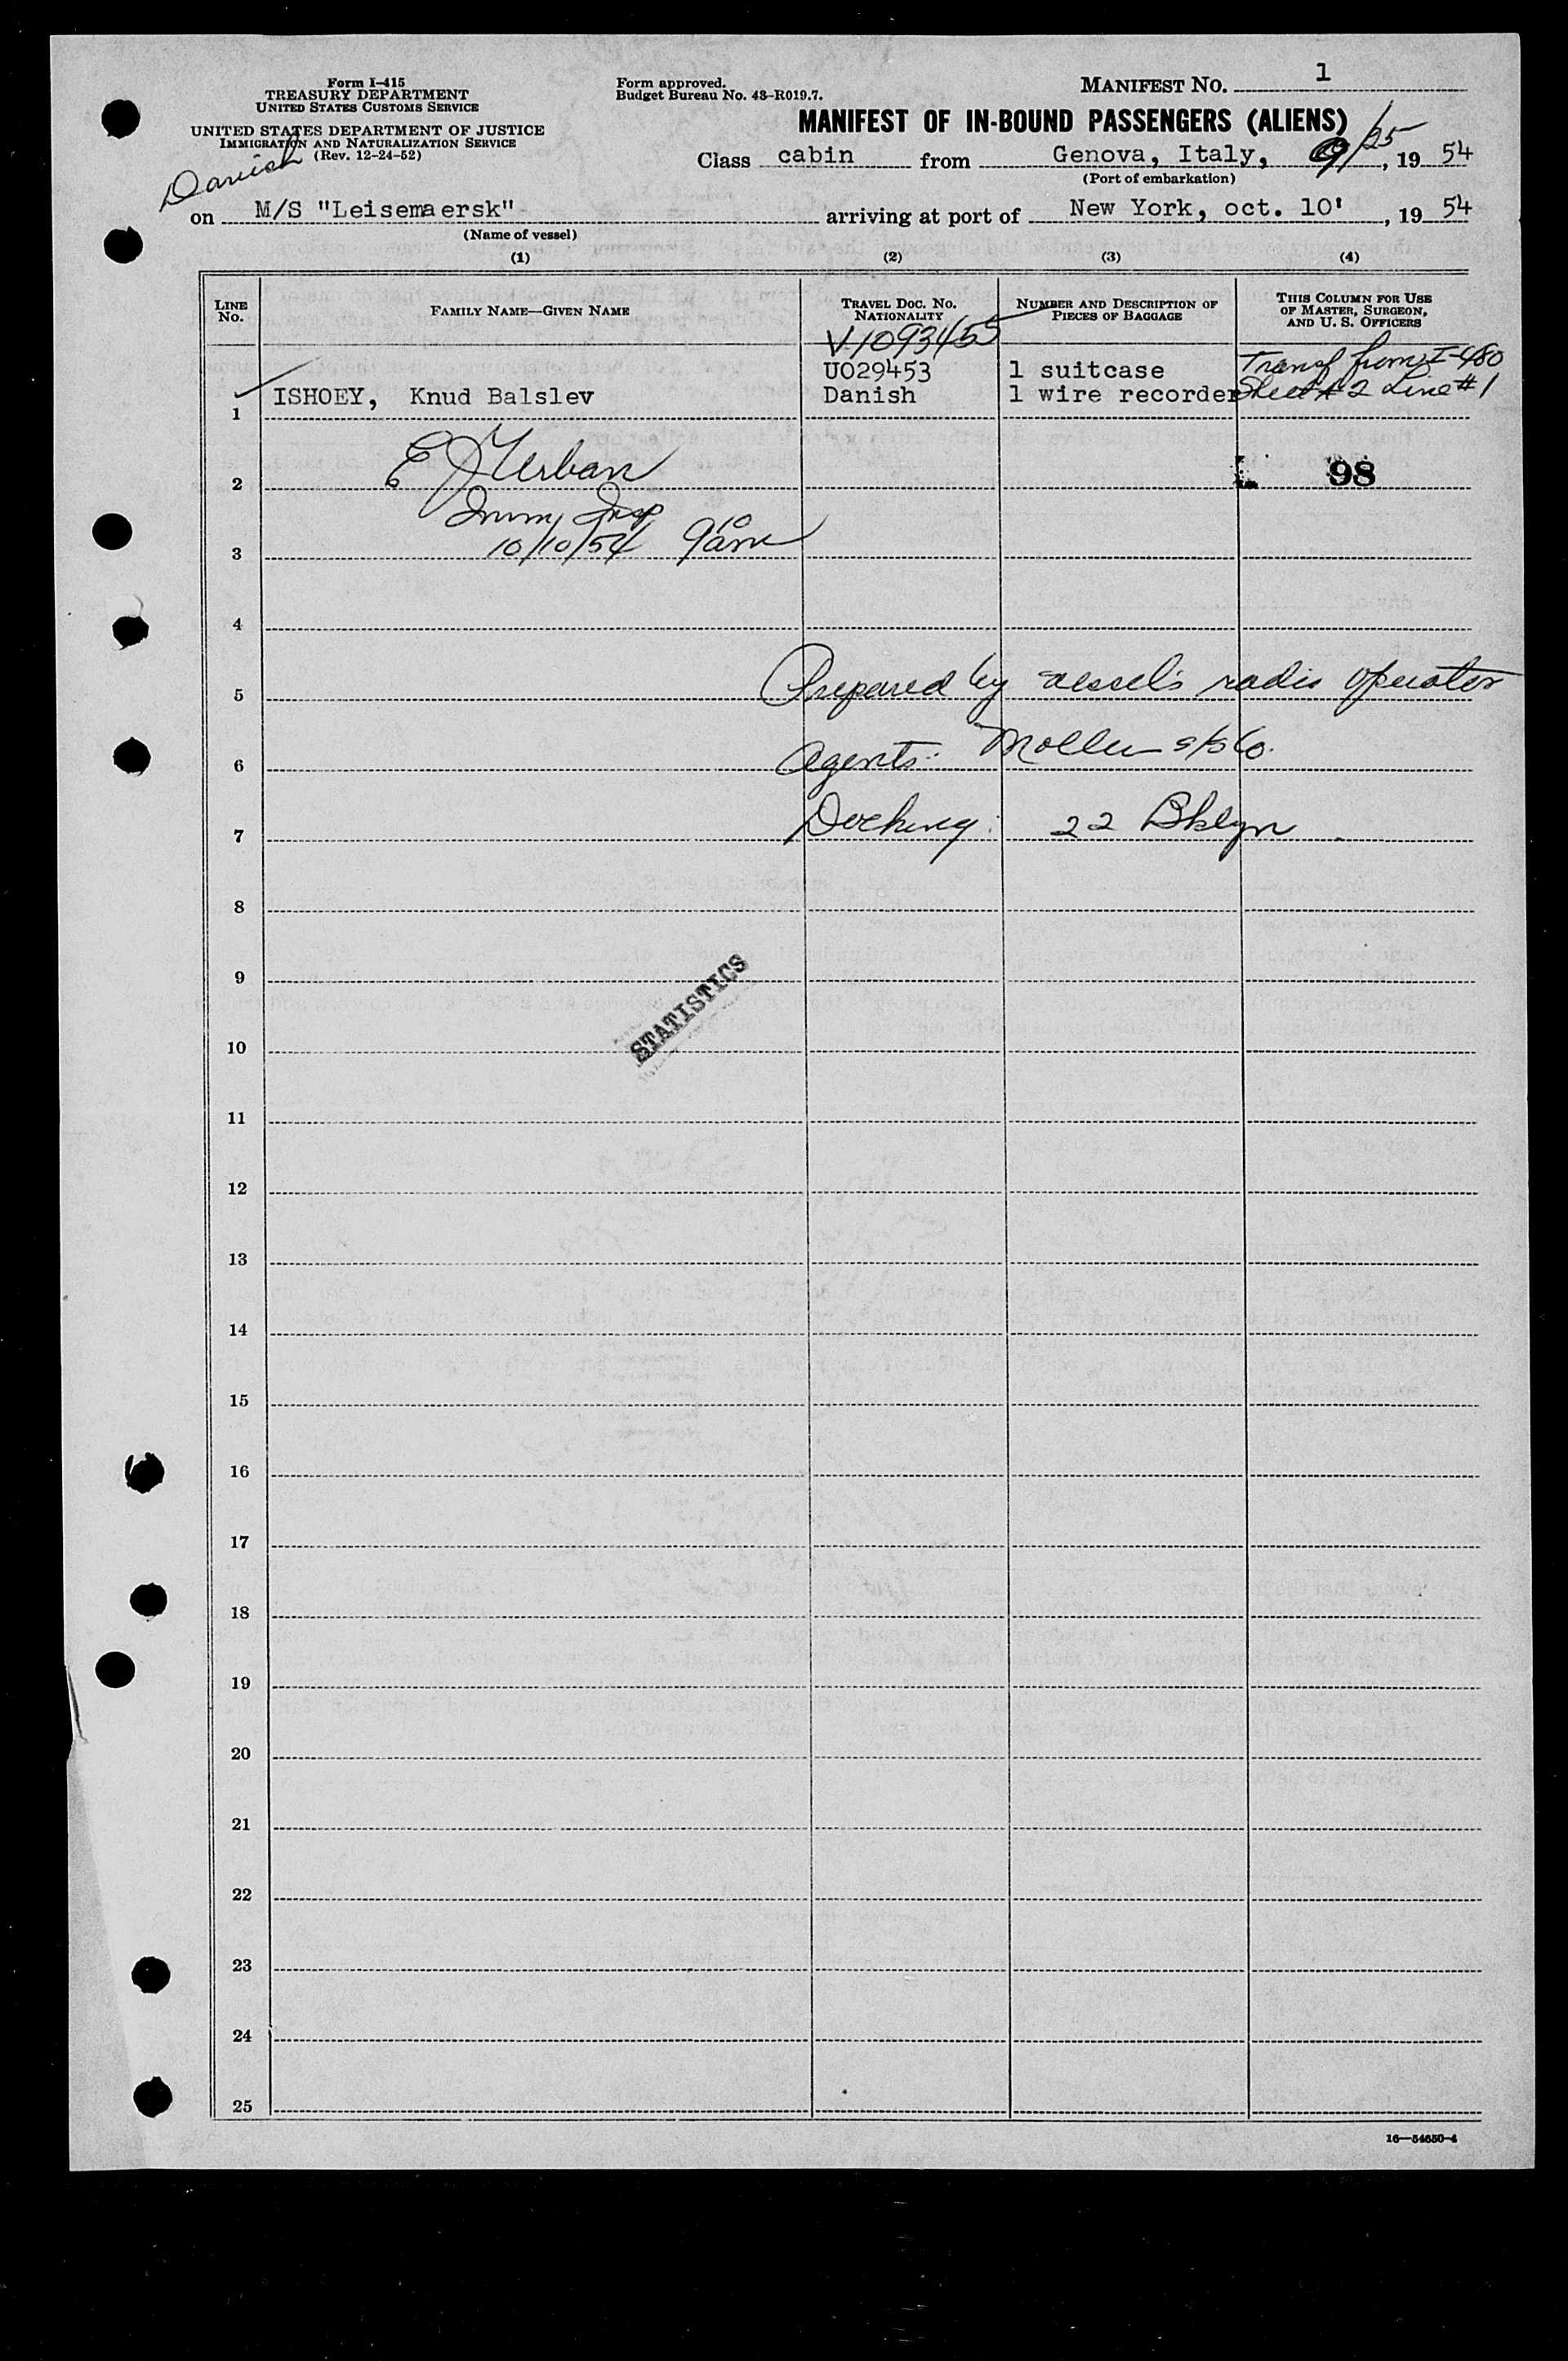 Form I-415
TREASURY DEPARTMENT
UNITED STATES CUSTOMS SERVICE
UNITED STATES DEPARTMENT OF JUSTICE
IMMIGRATION AND NATURALIZATION SERVICE
(Rev. 12-24-52)
Danish
Form approved.
Budget Bureau No. 43-R019.7.
MANIFEST NO. 1
MANIFEST OF IN-BOUND PASSENGERS (ALIENS)
Class cabin from Genova, Italy, 9/25, 19 54
(Port of embarkation)
on M/S "Leisemaersk" arriving at port of New York, oct. 10', 19 54
(Name of vessel)
(1) (2) (3) (4)
LINE NO.
FAMILY NAME—GIVEN NAME
TRAVEL DOC. NO. NATIONALITY
NUMBER AND DESCRIPTION OF PIECES OF BAGGAGE
THIS COLUMN FOR USE OF MASTER, SURGEON, AND U. S. OFFICERS
V1093455
UO29453 1 suitcase Transf from I-480
1 ISHOEY, Knud Balslev Danish 1 wire recorder Sheet #2 Line #1
E J Urban
2 98
Imm, Insp
3 10/10/54 9 10 am
4
5 Prepared by vessel's radio operator
6 Agents: Moller s/s Co.
7 Docking: 22 Bklyn
8
9
STATISTICS
10
11
12
13
14
15
16
17
18
19
20
21
22
23
24
25
16—54650-4